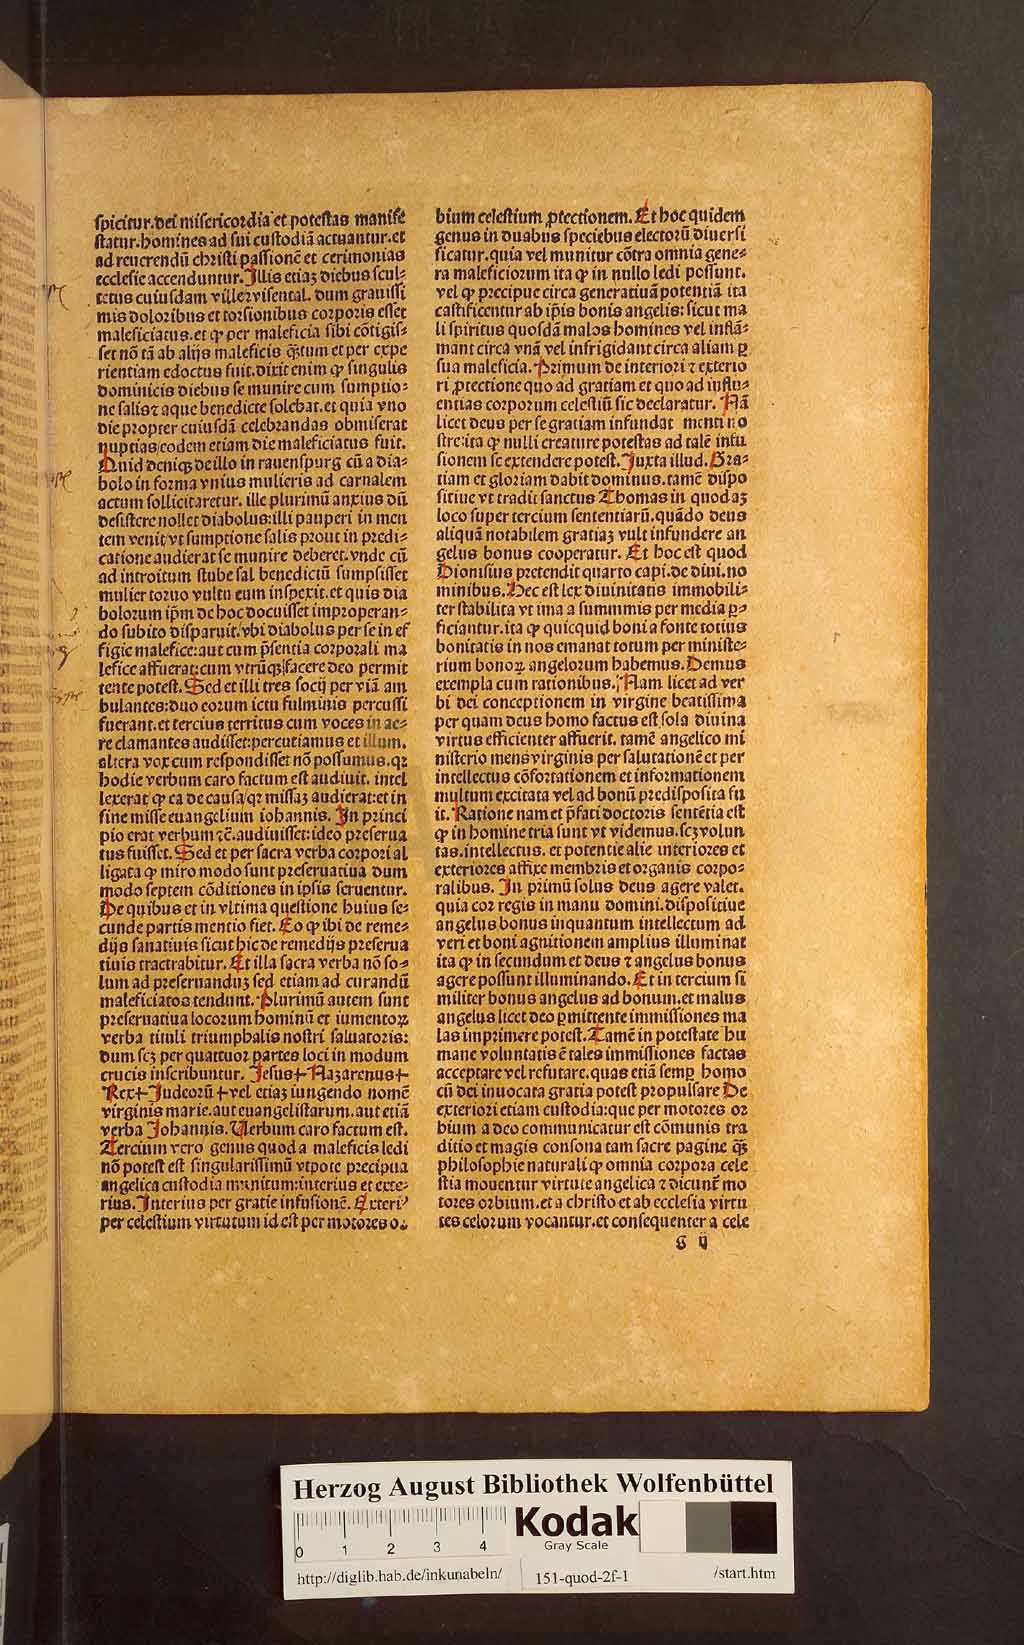 spicitur.dei misericordia et potestas manife
statur.homines ad sui custodiā actuantur.et
ad reuerendū christi passionē et cerimonias
ecclesie accenduntur. Illis etiaꝫ diebus scul⸗
tetus cuiusdam ville⁊visental. dum grauissi
mis doloribus et torsionibus corporis esset
malesiciatus.et ꝙ per maleficia sibi cōtigis⸗
set nō tā ab alijs maleficis q̄ꝫtum et per expe
rientiam edoctus fuit.dixit enim ꝙ singulis
dominicis diebus se munire cum sumptio⸗
ne salis⁊ aque benedicte solebat.et quia vno
die propter cuiusdā celebrandas obmiserat
nuptias eodem etiam die maleficiatus fuit.
Quid deniqꝫ de illo in rauenspurg cū a dia⸗
bolo in forma vnius mulieris ad carnalem
actum sollicitaretur. ille plurimū anxius dū
desistere nollet diabolus:illi pauperi in men
tem venit vt sumptione salis prout in predi⸗
catione audierat se munire deberet.vnde cū
ad introitum stube sal benedictū sumpsisset
mulier toruo vultu eum inspexit.et quis dia
bolorum ip̄m de hoc docuisset improperan⸗
do subito disparuit.vbi diabolus per se in ef
figie malefice:aut cum p̄sentia corporali ma
lefice affuerat:cum vtrūqꝫ facere deo permit
tente potest. Sed et illi tres socij per viā am
bulantes:duo eorum ictu fulminis percussi
fuerant.et tercius territus cum voces in ae⸗
re clamantes audisset:percutiamus et illum.
altera vox cum respondisset nō possumus.qꝛ
hodie verbum caro factum est audiuit. intel
lexerat ꝙ ea de causa qꝛ missaꝫ audierat:et in
fine misse euangelium iohannis. In princi
pio erat verbum ⁊ē.audiuisset:ideo preserua
tus fuisset. Sed et per sacra verba corpori al
ligata ꝙ miro modo sunt preseruatiua dum
modo septem cōditiones in ipsis seruentur.
De quibus et in vltima questione huius se⸗
cunde partis mentio fiet. Eo ꝙ ibi de reme⸗
dijs sanatiuis sicut hic de remedijs preserua
tiuis tractrabitur. Et illa sacra verba nō so⸗
lum ad preseruanduꝫ sed etiam ad curandū
maleficiatos tendunt. Plurimū autem sunt
preseruatiua locorum hominū et iumentoꝝ
verba tituli triumphalis nostri saluatoris:
dum scꝫ per quattuor partes loci in modum
crucis inscribuntur. Iesus+Nazarenus+
Rex+Iudeorū+vel etiaꝫ iungendo nomē
virginis marie.aut euangelistarum.aut etiā
verba Iohannis. Uerbum caro factum est.
Tercium vero genus quod a maleficis ledi
nō potest est singularissimū vtpote precipua
angelica custodia munitum:interius et exte⸗
rius. Interius per gratie infusionē. Exteriꝰ
per celestium virtutum id est per motores or
bium celestium ꝓtectionem. Et hoc quidem
genus in duabus speciebus electorū diuersi
ficatur.quia vel munitur cōtra omnia gene⸗
ra maleficiorum ita ꝙ in nullo ledi possunt.
vel ꝙ precipue circa generatiuā potentiā ita
castificentur ab ip̄is bonis angelis:sicut ma
li spiritus quosdā malos homines vel inflā⸗
mant circa vnā vel infrigidant circa aliam ꝑ
sua maleficia. Primum de interiori ⁊ exterio
ri ꝓtectione quo ad gratiam et quo ad influ⸗
entias corporum celestiū sic declaratur. Nā
licet deus per se gratiam infundat menti no
stre:ita ꝙ nulli creature potestas ad talē infu
sionem se extendere potest. Iuxta illud. Gra⸗
tiam et gloriam dabit dominus.tamē dispo
sitiue vt tradit sanctus Thomas in quodaꝫ
loco super tercium sententiarū.quādo deus
aliquā notabilem gratiaꝫ vult infundere an
gelus bonus cooperatur. Et hoc est quod
Dionisius pretendit quarto capi.de diui.no
minibus. Hec est lex diuinitatis immobili⸗
ter stabilita vt ima a summis per media ꝑ⸗
ficiantur.ita ꝙ quicquid boni a fonte totius
bonitatis in nos emanat totum per ministe⸗
rium bonoꝝ angelorum habemus. Demus
exempla cum rationibus. Nam licet ad ver
bi dei conceptionem in virgine beatissima
per quam deus homo factus est sola diuina
virtus efficienter affuerit. tamē angelico mi
nisterio mens virginis per salutationē et per
intellectus cōfortationem et informationem
multum excitata vel ad bonū predisposita fu
it. Ratione nam et p̄fati doctoris sentētia est
ꝙ in homine tria sunt vt videmus.scꝫ volun
tas.intellectus. et potentie alie interiores et
exteriores affixe membris et organis corpo⸗
ralibus. In primū solus deus agere valet.
quia cor regis in manu domini.dispositiue
angelus bonus inquantum intellectum ad
veri et boni agnitionem amplius illuminat
ita ꝙ in secundum et deus ⁊ angelus bonus
agere possunt illuminando. Et in tercium si
militer bonus angelus ad bonum.et malus
angelus licet deo ꝑmittente immissiones ma
las imprimere potest. Tamē in potestate hu
mane voluntatis ē tales immissiones factas
acceptare vel refutare.quas etiā semꝑ homo
cū dei inuocata gratia potest propulsare De
exteriori etiam custodia:que per motores or
bium a deo communicatur est cōmunis tra
ditio et magis consona tam sacre pagine q̄ꝫ
philosophie naturali ꝙ omnia corpora cele
stia mouentur virtute angelica ⁊ dicunt̄ mo
tores orbium.et a christo et ab ecclesia virtu
tes celorum vocantur.et consequenter a cele
g ij
Herzog August Bibliothek Wolfenbüttel
Kodak
Gray Scale
0 1 2 3 4
http://diglib.hab.de/inkunabeln/ 151-quod-2f-1 /start.htm